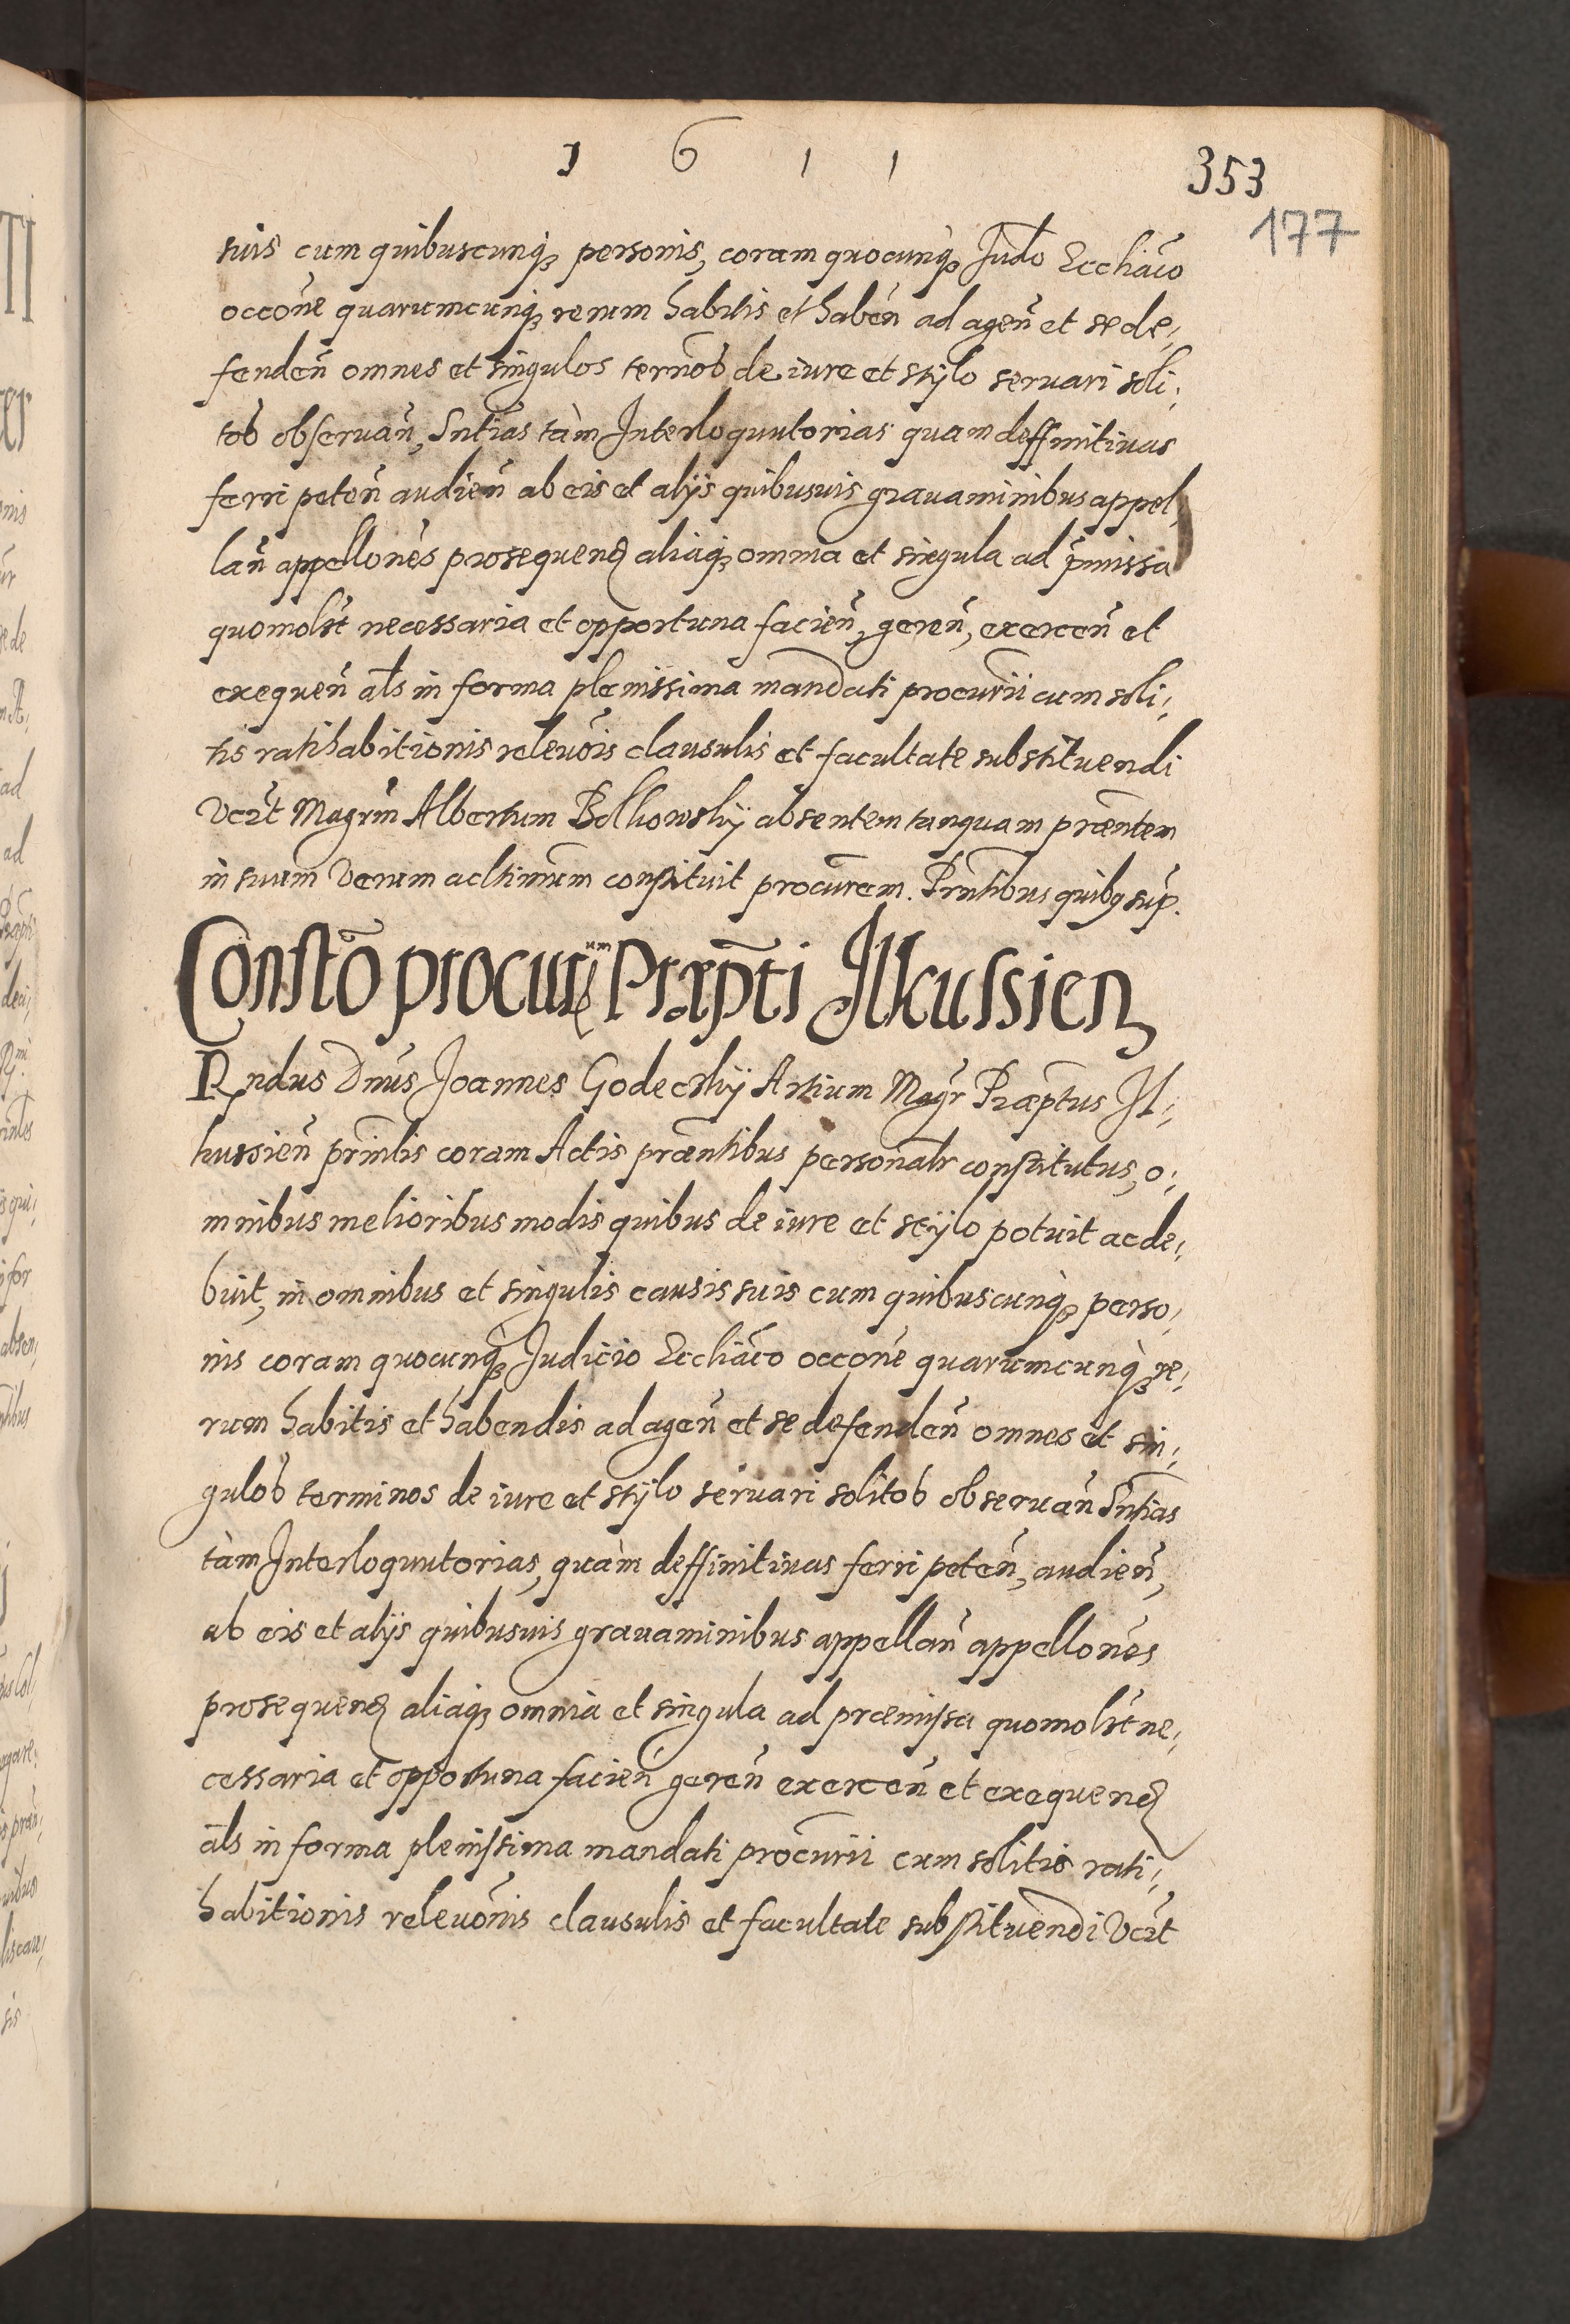 1 6 1 1
353
177
suis cum quibuscunq3 personis, coram quocunq3 Judō Eccliāco
occōne quarumcunq3 rerum habitis et habēn ad agen̄ et se de,
fenden̄ omnes et singulos termōs de iure et stylo servari soli,
tos observan̄, Sntias tàm Interloquutorias quam deffinitivas
ferri peten̄ audien̄ ab eis et alijs quibusvis gravaminibus appel,
lan̄ appellōnes prosequen aliaq3 omnia et singula ad p̄missa
quomolt necessaria et opportuna facien̄, geren̄, exercen̄ et
exequen̄ als in forma plenissima mandati procurii cum soli,
tis ratihabitionis relevōis clausulis et facultate substituendi
Vdzt Magrum Albertum absentem tanquam præntem
in suum verum ac ltimum constituit procurem. Prntibus quibq sup.
Constō procurum Præpti Ilkussien
Rndus Dnus Joannes Artium Magr Præptus Il,
kussien̄ prinlis coram Actis præntibus personalr constitutus, o,
mnibus melioribus modis quibus de iure et stylo potuit ac de,
buit, in omnibus et singulis causis suis cum quibuscunq3 perso,
nis coram quocunq3 Judicio Eccliāco occōne quarumcunq3 re,
rum habitis et habendis ad agen̄ et se defenden̄ omnes et sin,
gulos terminos de iure et stylo servari solitos observan̄ Sntias
tàm Interloquutorias, quàm deffinitivas ferri peten̄, audien̄,
ab eis et alijs quibusvis gravaminibus appellan̄ appellōnes
prosequen aliaq3 omnia et singula ad præmissa quomolt ne,
cessaria et opportuna facien̄ geren̄ exercen̄ et exequen
als in forma plenissima mandati procurii cum solitis rati,
habitionis relevōnis clausulis et facultate substituendi Vdzt